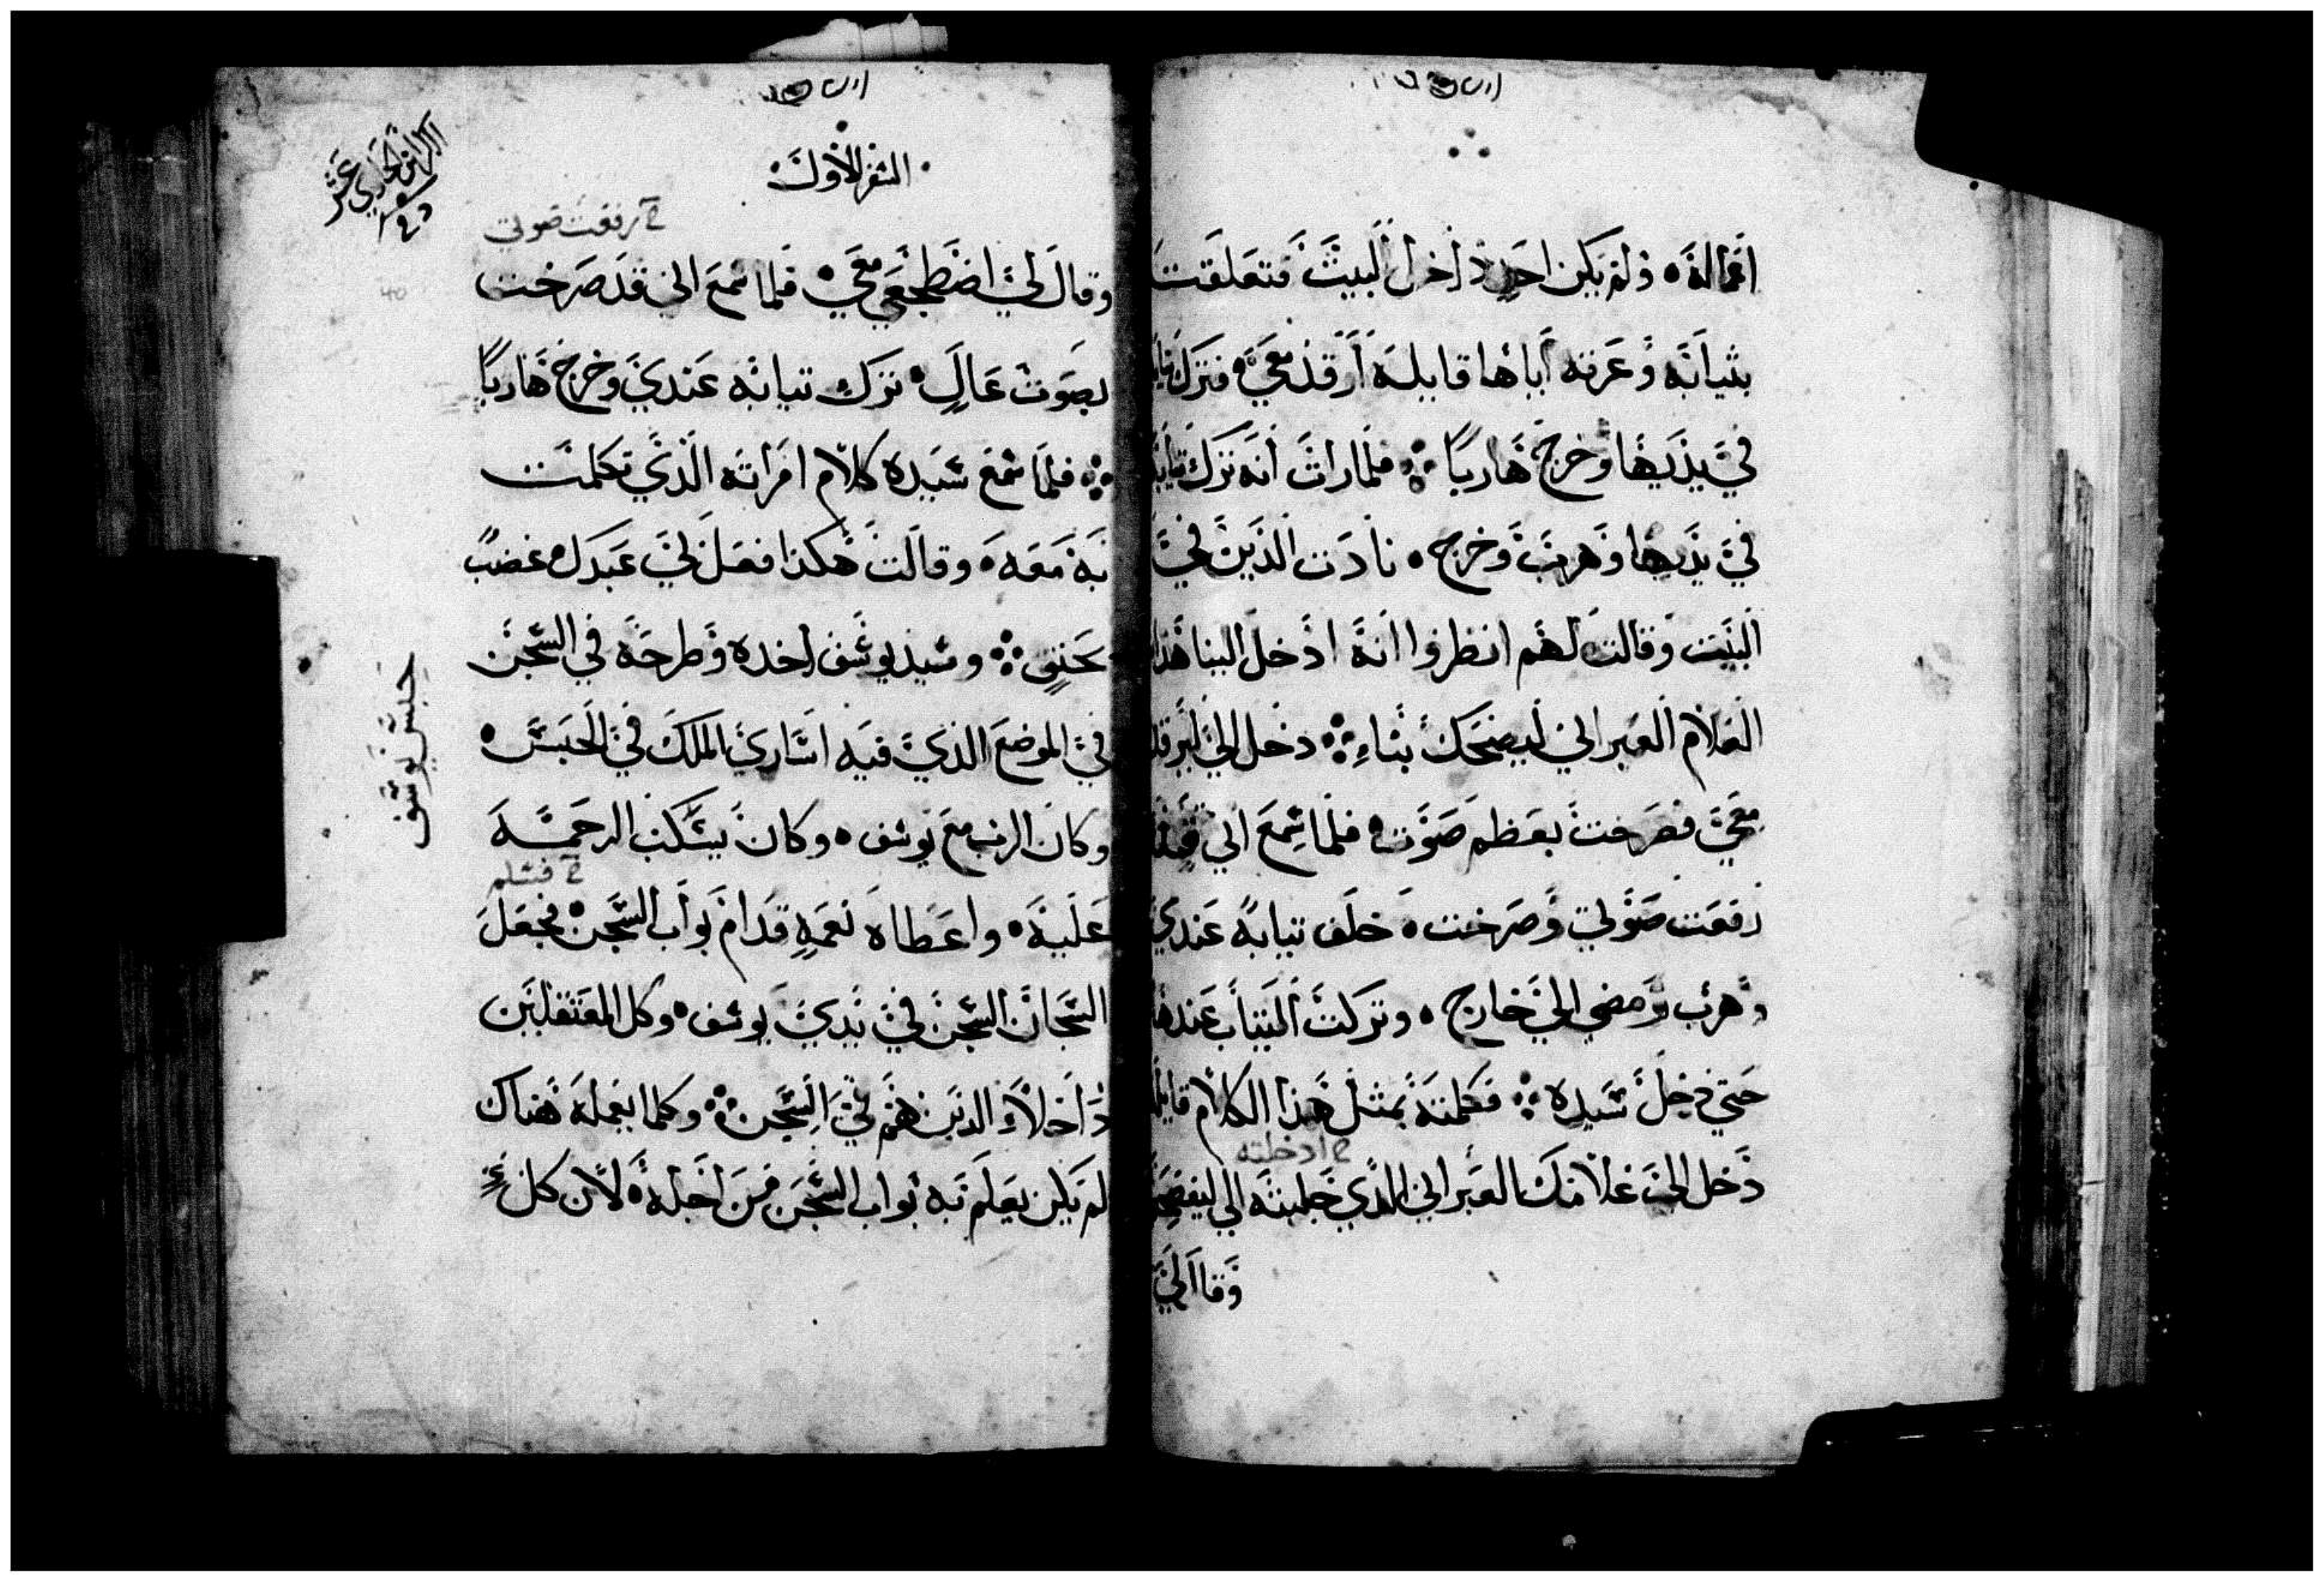 اعماله ولم يكن احد داخل البيت فتعلقت
بثيابه وعرته اياها قايله ارقد معي فترك ثيابه
في يديها وخرج هاربا فلما رات انه ترك ثيابه
في يديها وهرب وخرج نادت الذين في
البيت وقالت لهم انظروا انه ادخل الينا هذا
الغلام العبراني ليضحك بناء دخل الي ليرقد
معي فصرخت بعظم صوت فلما سمع اني قد
رفعت صوتي وصرخت خلف تيابه عندي
وهرب ومضي الي خارج وتركت التياب عندها
حتي دخل سيده فكلمته بمثل هذا الكلام قايله
ادخلته
دخل الي غلامك العبراني الذي جلبته الي ليفضح
وقال لي
السفر الاول
رفعت صوتي
وقال لي اضطجعي معي فلما سمع اني قد صرخت
بصوت عال ترك تيابه عندي وخرج هاربا
فلما سمع سيده كلام امراته الذي تكلمت
به معه وقالت هكذا فعل لي عبدك غضب
بحنق وسيد يوسف اخده وطرحه في السجن
في الموضع الذي فيه اساري الملك في الحبس
حبس يوسف
وكان الرب مع يوسف وكان يسكب الرحمة
فسلم
عليه واعطاه نعمه قدام بواب السجن فجعل
السجان السجن في يدي يوسف وكل المعتقلين
داخلا الذين هم في السجن وكلما يعمله هناك
لم يكن يعلم به بواب السجن من اجله لان كل شي